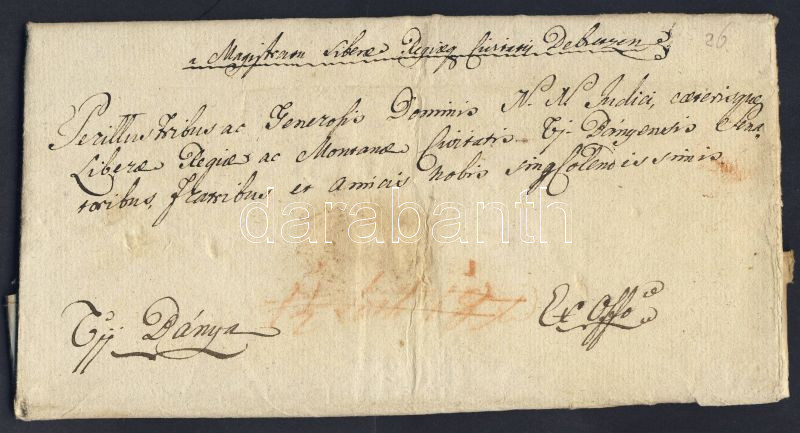 a Magistratu Liberæ Regiæq Civitatis Debreczen
26
Perillustribus ac Generosis Dominis N. N. Judici, cæterisque
Liberæ Regiæ ac Montanæ Civitatis Uj-Bányensis Sena-
toribus, Fratribus et Amicis nobis sing Colendissimis
darabanth
Uj Bánya
Ex Offo